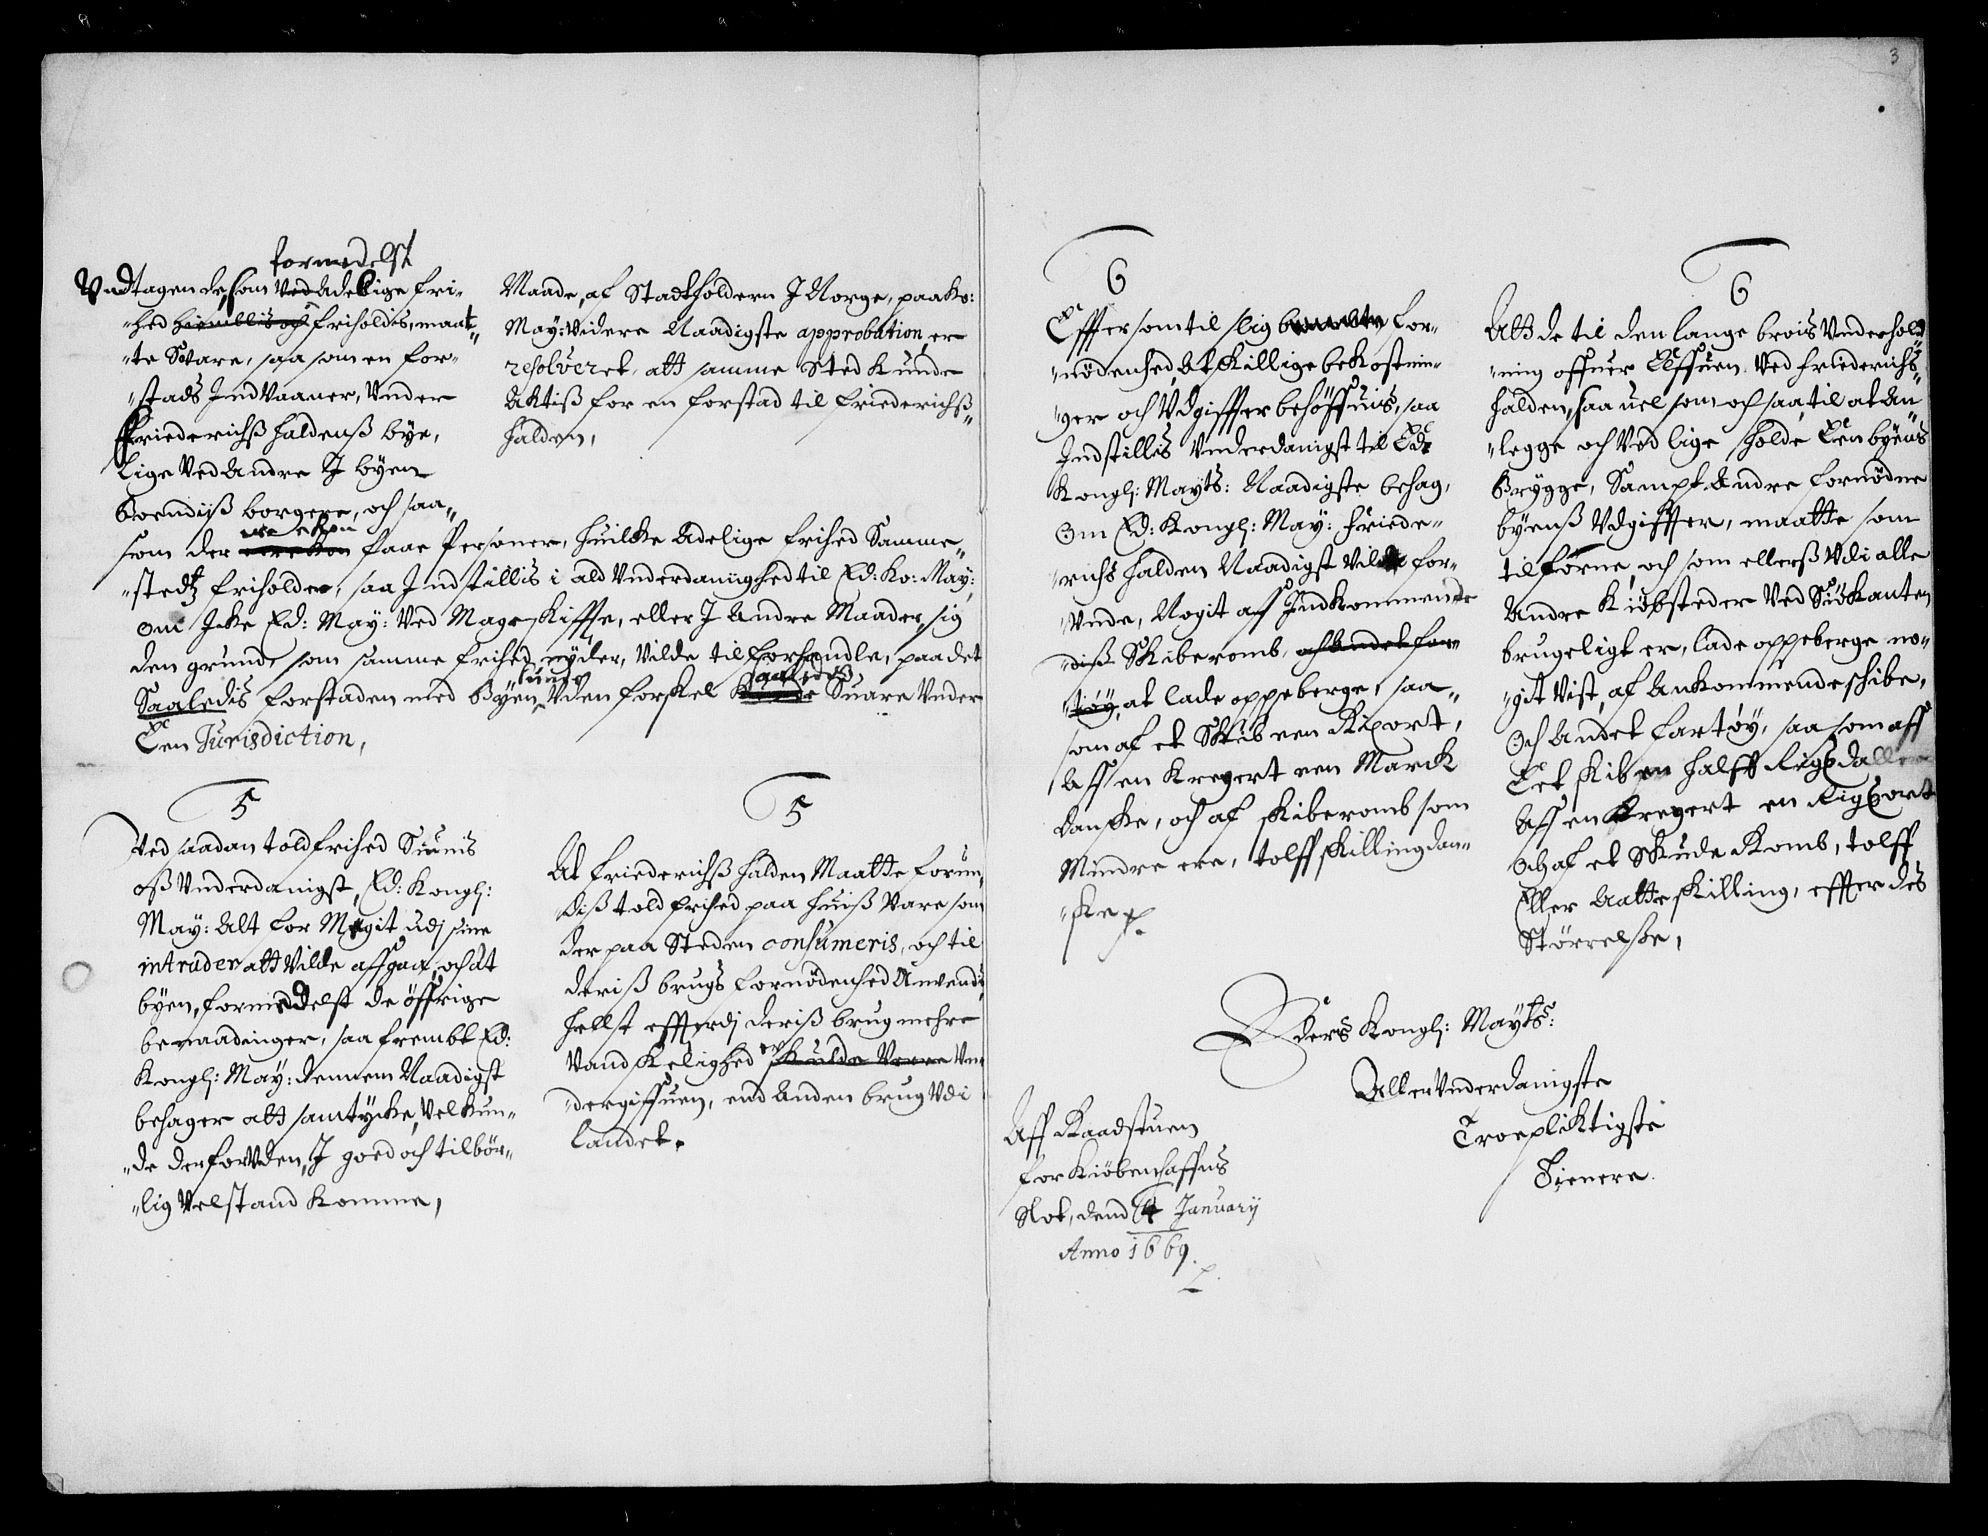 formedelst
Vndtagen de, som Ved Adelige fri-
"hed hiemlis och friholdis, maat-
"te Svare, saa som en for-
"stads Indvaaner, Vnder
Friederichß Haldenß bye,
Lige Ved Andre J byen
Boendiß borgere, och saa-"
ere ekon
som der ere kon faae Personer, huilke Adelige frihed Samme-
"stedtz friholder, saa Jndstillis i ald Vnderdaniighed til Ed: Ko: May:
om Icke Ed: May: Ved Mageskiffte, eller J Andre Maader, sig
den grund, som samme frihed nyder, Vilde til forhandle, paa det
kunde saaledis
Saaledis forstaden med Byen, Vden forskel Kunde Suare Vnder
Een Jurisdiction,
Maade, af Stadtholdern J Norge, paa Ko:
May: Videre Naadigste approbation, er
resolveret, att samme Sted kunde
Aktiß for en forstad til friederichß-"
halden,
5
Ved saadan toldfrihed Siunis
oß Vnderdanigst, Ed: Kongl:
May: Alt for Megit udj sine
intrader att Vilde affgaa, och at
byen, formedelst de öffrige
benaadinger, saa frembt Ed:
Kongl: May: dennem Naadigst
behager att samtycke, Vel kun-"
"de der foruden, J goed och tilbör-"
"lig Velstand komme,
5
At friederichß halden Maatte forun-
diß told frihed paa huiß Vare som
der paa Steden consumeris, och til
deriß brugs fornödenhed Anvendis,
helst effterdj deriß brug mehre
er
Vandskelighed skulde Vere Vn-
"dergiffuen, end Anden brug Vdi
Landet.
3
6
Effter som til slig for-
"nödenhed, Atskillige bekostnin-
"ger och Vdgiffter behöffuis, saa
Indstillis Vnderdanigst til Eds
Kongl: Mayts: Naadigste behag,
Om Ed: Kongl: May: friede-"
"richs halden Naadigst Vilde for-
"Vnde, Nogit aff Indkommende
"diß Skiberomb, och Andet far-
"töy, at lade oppeberge, saa-"
som af et Skib een Rixort,
Aff en Kreyert een Marck
danske, och af skiberomb som
Mindre ere, tolff skilling dan-"
"ske p.
6
Att de til den lange brois Vnderhold-
"ning offuer Elffuen Ved friederichs-"
halden, saa uel som och saa, til at An-
"legge och Ved lige holde Een byens
Brygge, Sampt Andre fornödne
byenß Vdgiffter, maatte som
tilforne, och som ellerß Vdi alle
Andre Kiöbsteder Ved Siökanten
brugeligt er, lade oppeberge no-"
"git Vist, af Ankommende schibe,
Och Andet fartöy, saa som aff
Eet skib en halff Rigsdaller
Aff en Kreyert en Rigsort
Och af et Skude Romb, tolff
Eller Aatte skilling, effter des
Störrelse,
Eders Kongl: Mayts:
AllerVnderdanigste
Troepliktigste
Tienere.
Aff Raadstuen
for Kiöbenhaffns
Slot, dend 4 January
Anno 1669.